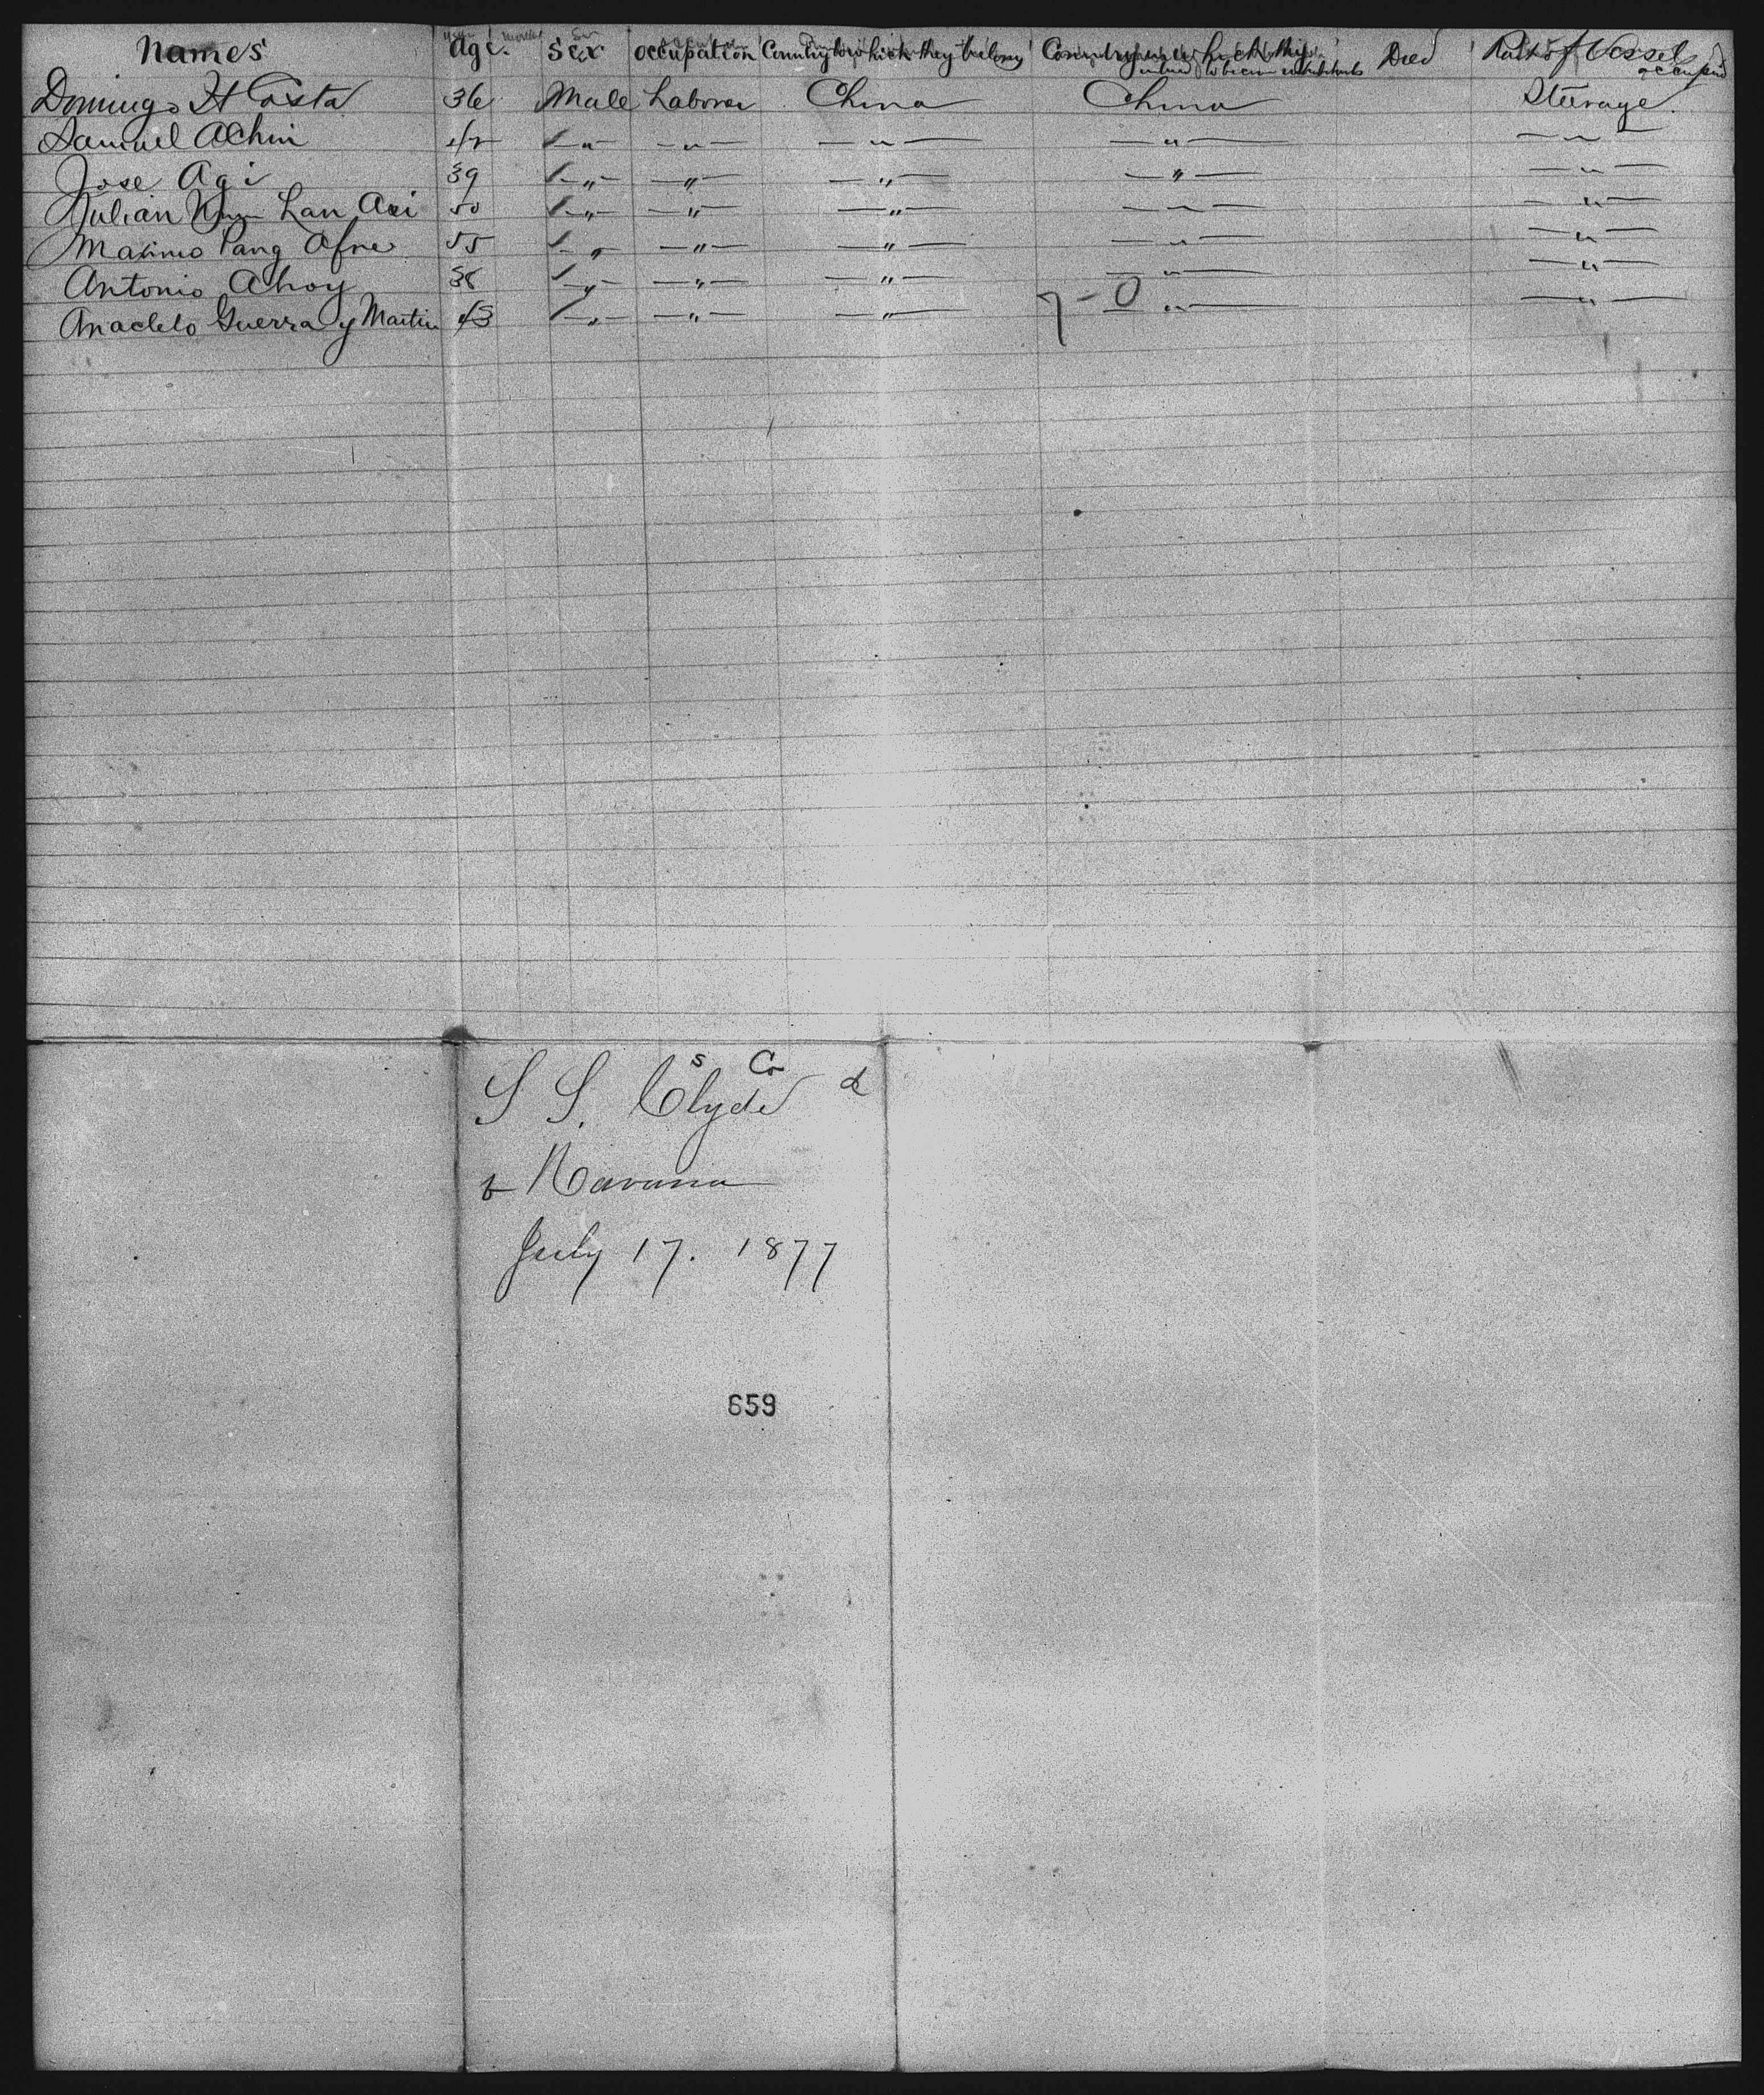 Names Age. Sex occupation Country to which they belong Country in which they intend to become inhabitants Died Part of Vessel occupied
Domingo Acosta 36 Male Laborer China China Steerage
Samuel Achin 42 " " " " "
Jose Agi 39 " " " " "
Julian Lan 50 " " " " "
Maximo Pang Afue 55 " " " " "
Antonio Ahoy 38 " " " " "
Anacleto Guerra y Martin 43 " " " " "
7-0
s Co
S S. Clyde
Havana
July 17. 1877
659